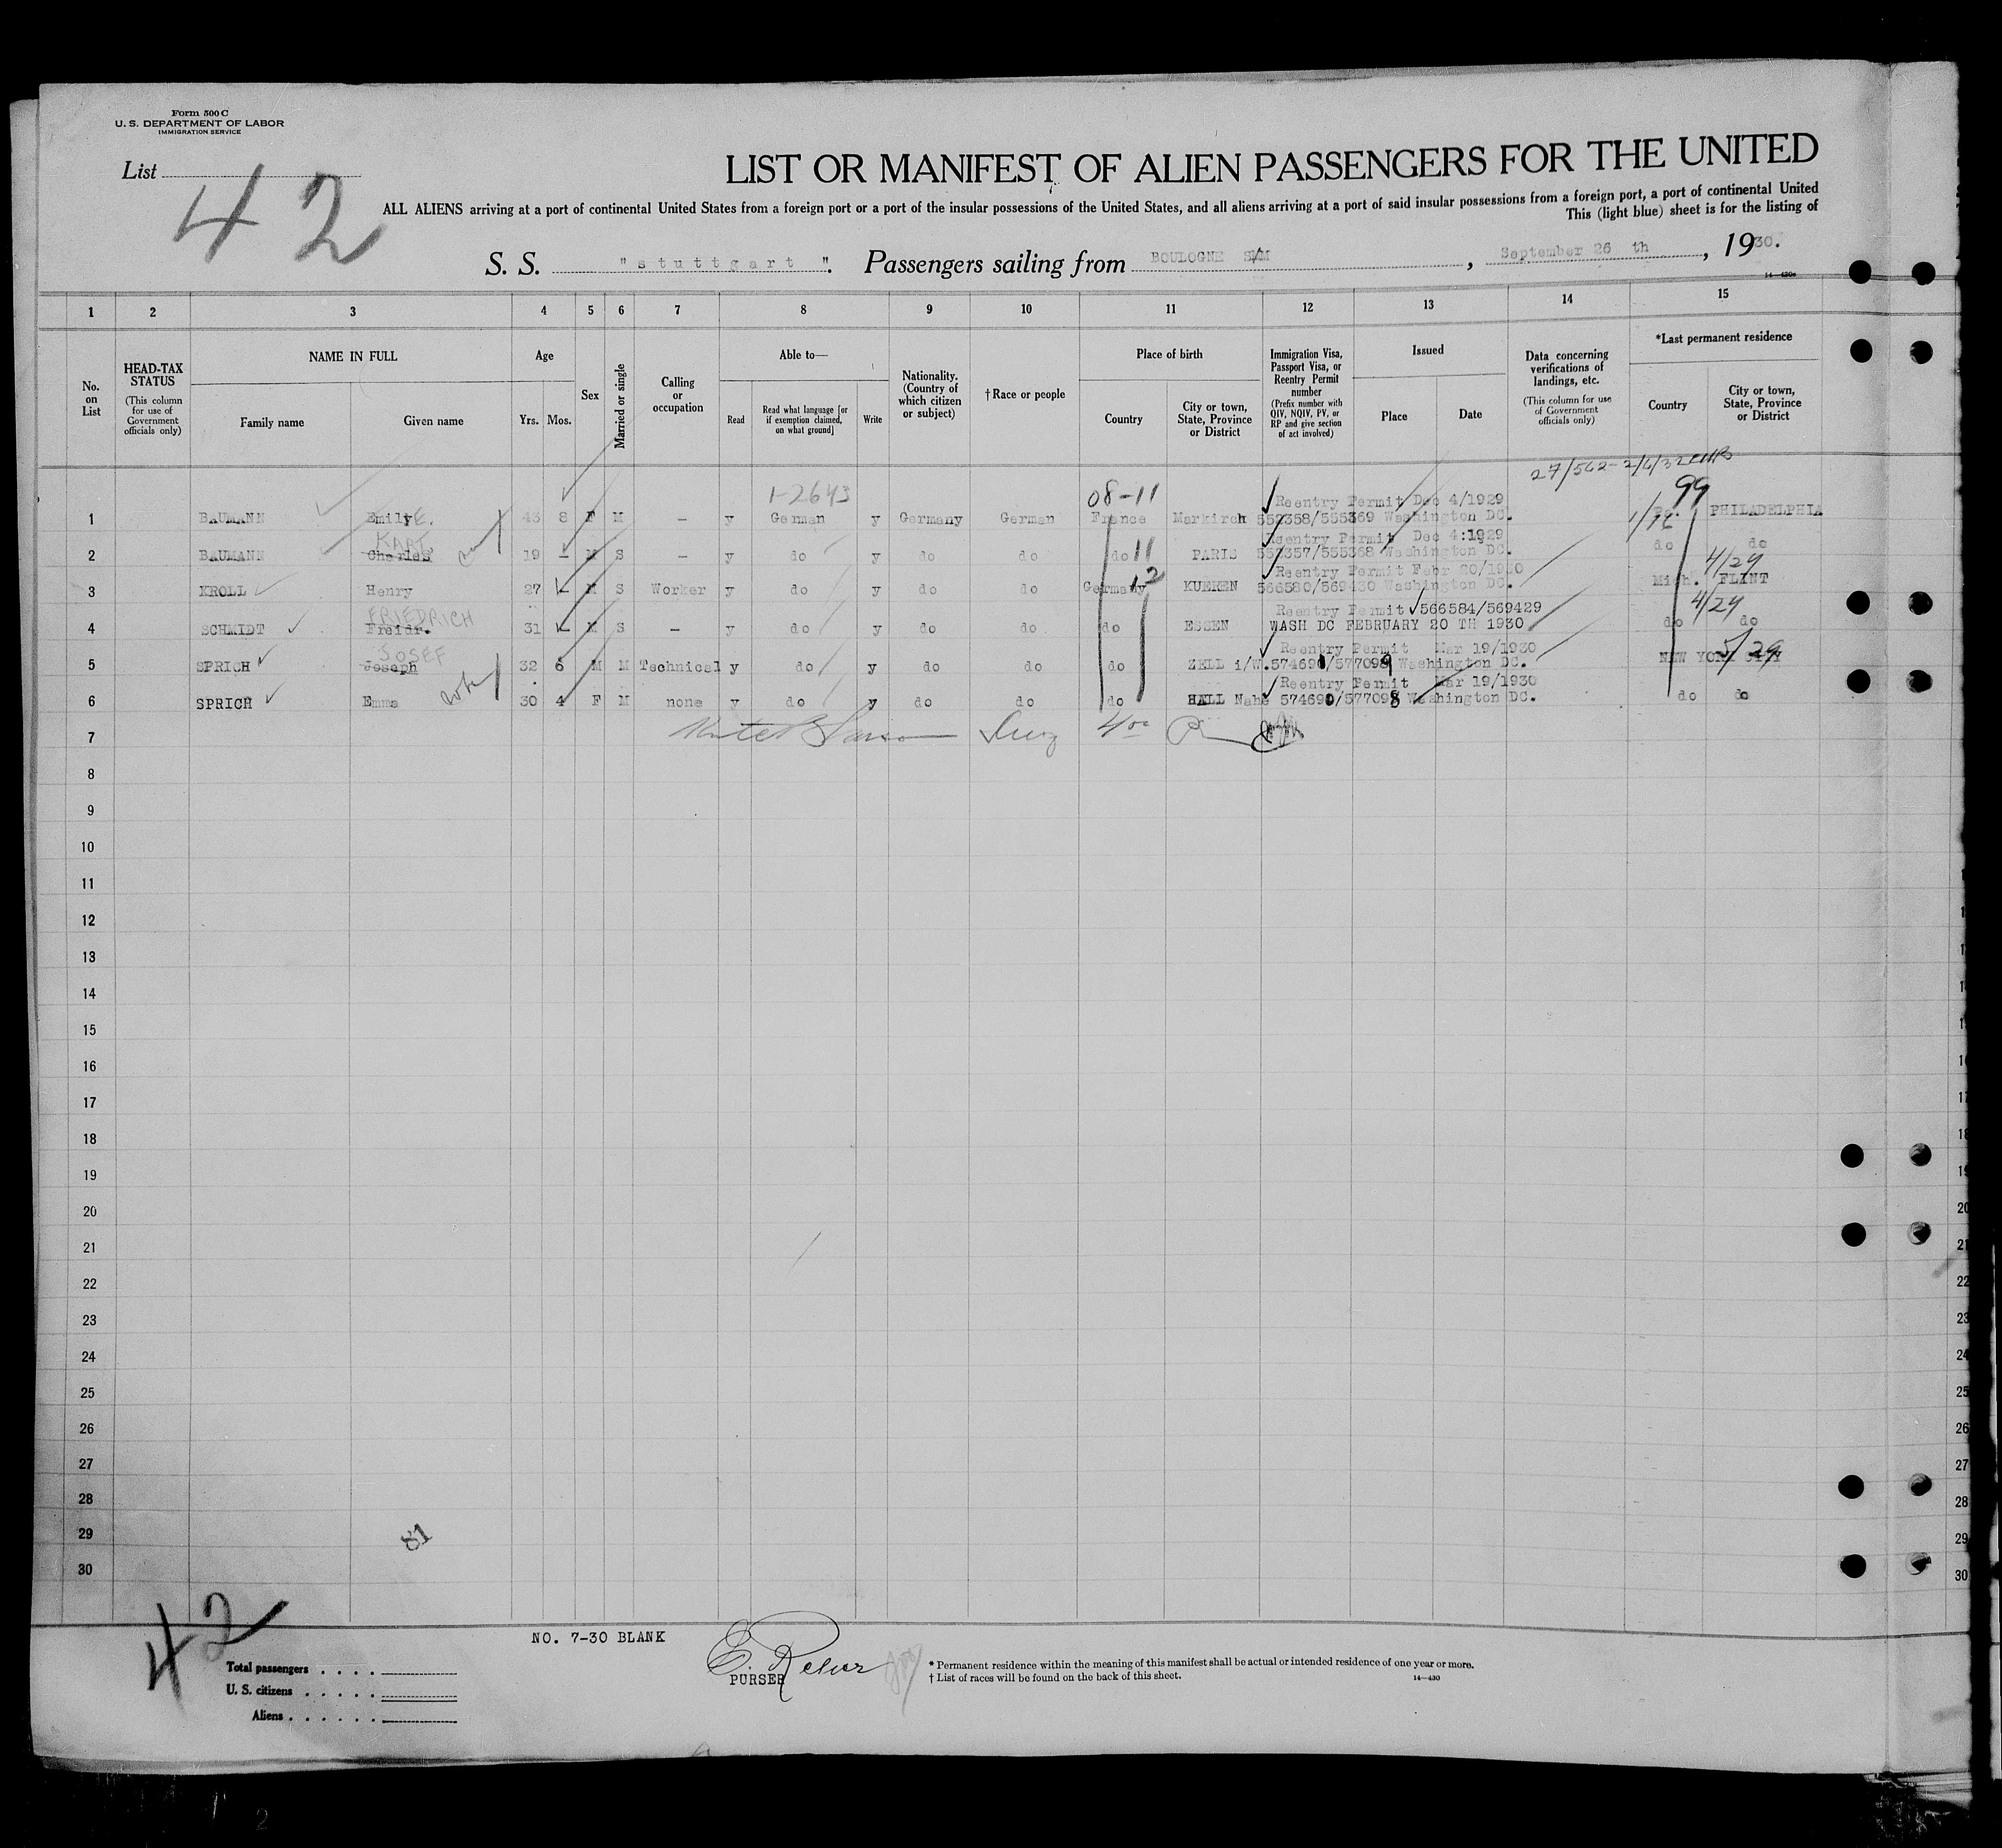 Form 500 C
U. S. DEPARTMENT OF LABOR
IMMIGRATION SERVICE
List 42
LIST OR MANIFEST OF ALIEN PASSENGERS FOR THE UNITED
ALL ALIENS arriving at a port of continental United States from a foreign port or a port of the insular possessions of the United States, and all aliens arriving at a port of said insular possessions from a foreign port, a port of continental United
This (light blue) sheet is for the listing of
S. S. "stuttgart". Passengers sailing from BOULOGNE S/M, September 26 th, 1930.
14—430a
1 2 3 4 5 6 7 8 9 10 11 12 13 14 15
No. on List
HEAD-TAX STATUS (This column for use of Government officials only)
NAME IN FULL Family name Given name
Age Yrs. Mos.
Sex
Married or single
Calling or occupation
Able to— Read Read what language [or if exemption claimed, on what ground] Write
Nationality. (Country of which citizen or subject)
†Race or people
Place of birth Country City or town, State, Province or District
Immigration Visa, Passport Visa, or Reentry Permit number (Prefix number with QIV, NQIV, PV, or RP and give section of act involved)
Issued Place Date
Data concerning verifications of landings, etc. (This column for use of Government officials only)
*Last permanent residence Country City or town, State, Province or District
27/562-
1-2643 08-11 99
Reentry Permit Dec 4/1929
1 BAUMANN Emilye. 43 8 F M - y German y Germany German France Markirch 552358/555369 Washington DC. Pa. PHILADELPHIA
KARL Reentry Permit Dec 4:1929
2 BAUMANN Charles 19 - M S - y do y do do do 11 PARIS 552357/555368 Washington DC. do do
Reentry Permit Febr 20/1930 4/29
3 KROLL Henry 27 - M S Worker y do y do do Germany 12 KUEKEN 566580/569430 Washington DC. Mich. FLINT
FRIEDRICH Reentry Permit 566584/569429 4/29
4 SCHMIDT Freidr. 31 - M S - y do y do do do ESSEN WASH DC FEBRUARY 20 TH 1930 do do
JOSEF Reentry Permit Mar 19/1930 5/29
5 SPRICH Joseph 32 6 M M Technical y do y do do do ZELL i/W. 574691/577099 Washington DC. NEW YORK CITY
Reentry Permit Mar 19/1930
6 SPRICH Emma 30 4 F M none y do y do do do HALL Nahe 574690/577098 Washington DC. do do
7
8
9
10
11
12
13
14
15
16
17
18
19
20
21
22
23
24
25
26
27
28
29
30
81
42
NO. 7-30 BLANK
PURSER
Total passengers
U. S. citizens
Aliens
* Permanent residence within the meaning of this manifest shall be actual or intended residence of one year or more.
† List of races will be found on the back of this sheet.
14—430